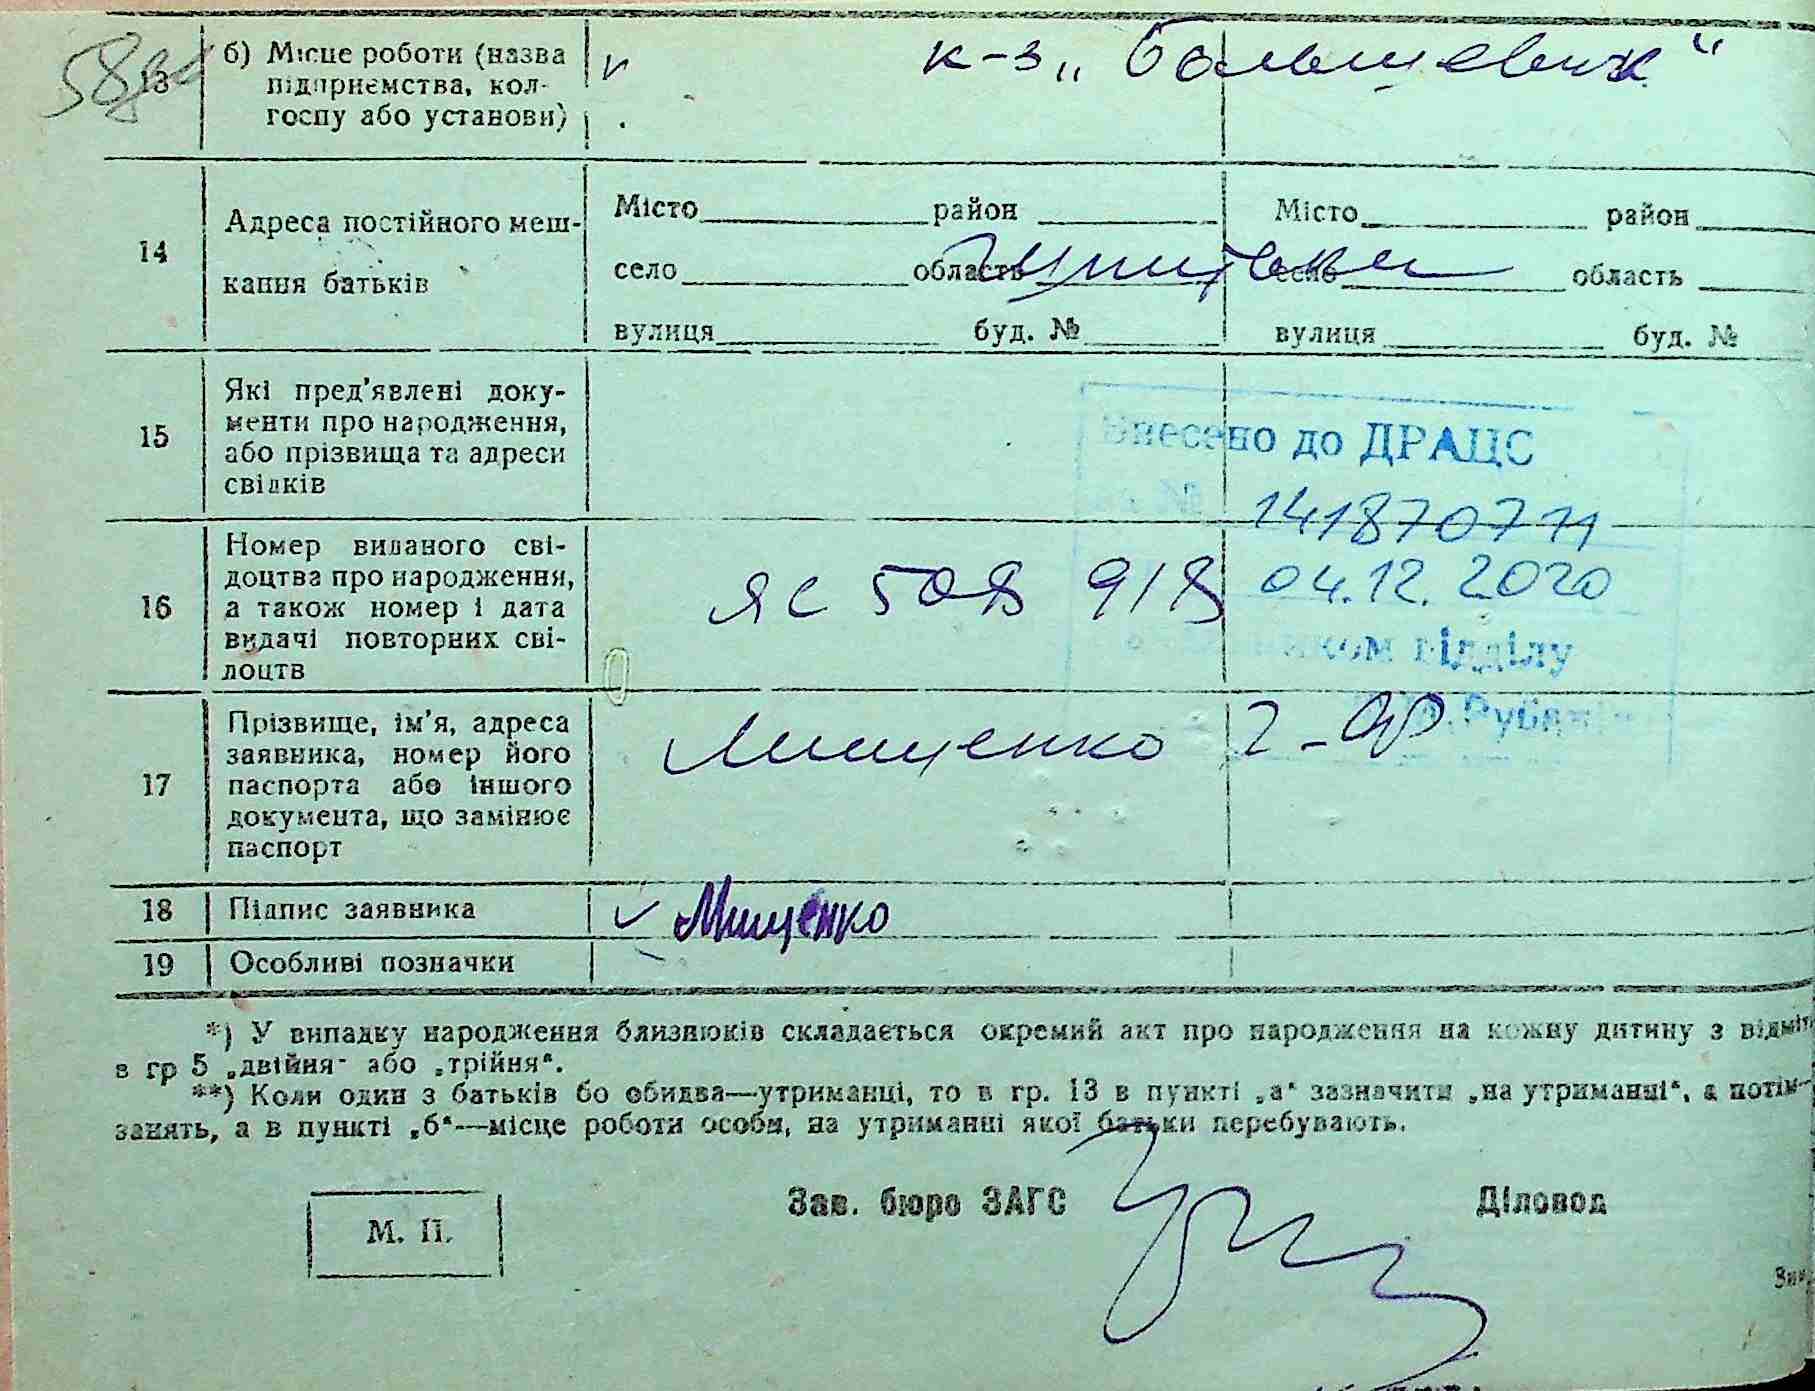 13
б) Місце роботи (назва
підприємства, кол-
госпу або установи)
к-з „Большевик“
14
Адреса постійного меш-
кання батьків
Місто район
село область
вулиця буд. №
Місто район
село область
вулиця буд. №
15
Які пред'явлені доку-
менти про народження,
або прізвища та адреси
свідків
Внесено до ДРАЦС
за № 141870711
04.12.2020
відділу
16
Номер виданого сві-
доцтва про народження,
а також номер і дата
видачі повторних сві-
доцтв
ЯС 508 918
17
Прізвище, ім'я, адреса
заявника, номер його
паспорта або іншого
документа, що замінює
паспорт
Мищенко
18
Підпис заявника
Мищенко
19
Особливі позначки
*) У випадку народження близнюків складається окремий акт про народження на кожну дитину з відміт
в гр 5 „двійня“ або „трійня“.
**) Коли один з батьків бо обидва—утриманці, то в гр. 13 в пункті „а“ зазначити „на утриманні“, а потім—
занять, а в пункті „б“—місце роботи особи, на утриманні якої батьки перебувають.
М. П.
Зав. бюро ЗАГС
Діловод